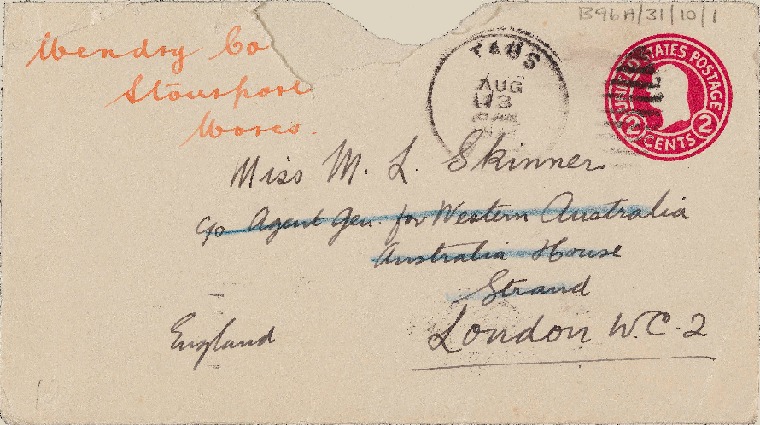 B96A/31/10/1
Wendry Co
Stourport
Worcs.
TAOS
AUG
13
UNITED STATES POSTAGE
2 CENTS 2
Miss M. L. Skinner
c/o Agent Gen. for Western Australia
Australia House
Strand
London W.C.2
England